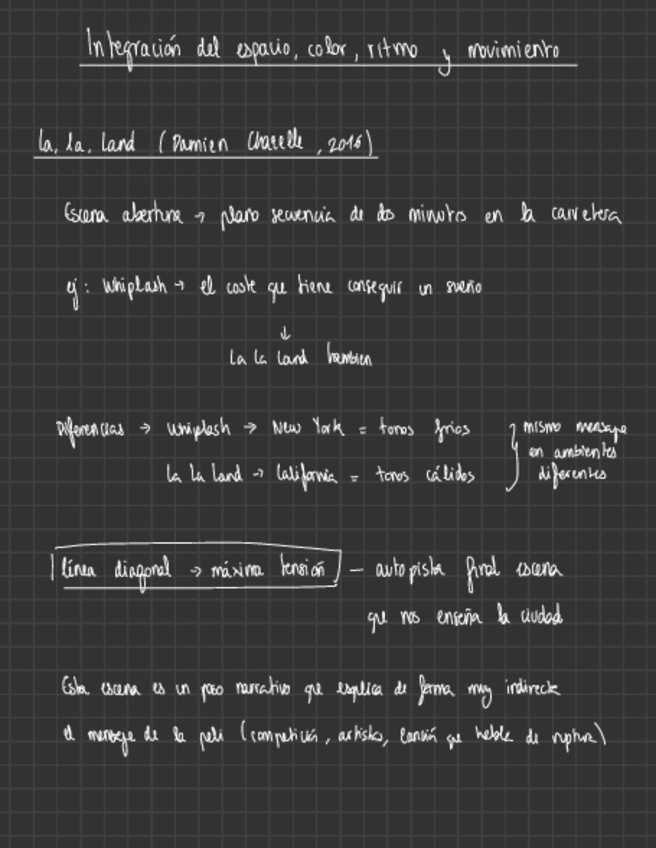 Integración del espacio, color, ritmo y movimiento
La, la, land (Damien Chazelle, 2016)
Escena abertura → plano secuencia de dos minutos en la carretera
ej: Whiplash → el coste que tiene conseguir un sueño
↓
La La Land tambien
Diferencias → Whiplash → New York = tonos frios
La La Land → California = tonos cálidos
} mismo mensaje
en ambientes
diferentes
línea diagonal → máxima tensión — autopista final escena
que nos enseña la ciudad
Esta escena es un poco narrativo que explica de forma muy indirecta
el mensaje de la peli (competición, artistas, canción que habla de ruptura)